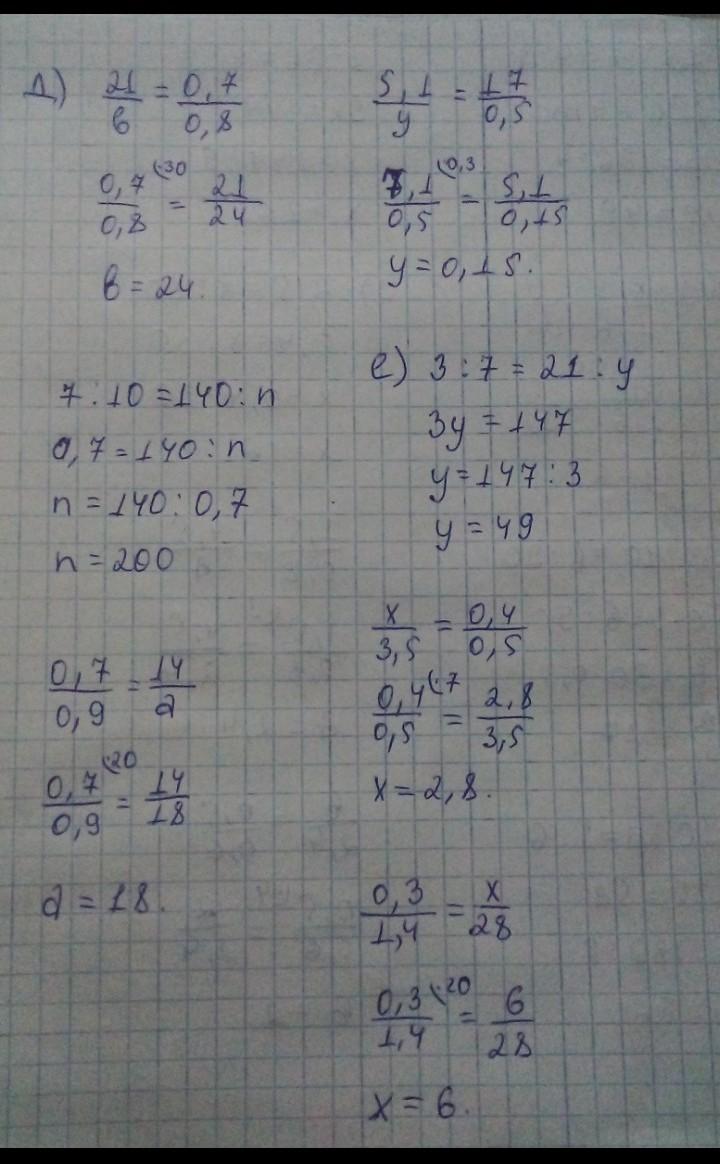 д) 21/в = 0,7/0,8
0,7/0,8 (·30 = 21/24
в = 24.
7 : 10 = 140 : n
0,7 = 140 : n
n = 140 : 0,7
n = 200
0,7/0,9 = 14/а
0,7/0,9 (·20 = 14/18
а = 18.
5,1/y = 17/0,5
1/0,5 (·0,3 = 5,1/0,15
y = 0,15.
е) 3 : 7 = 21 : y
3y = 147
y = 147 : 3
y = 49
x/3,5 = 0,4/0,5
0,4/0,5 (·7 = 2,8/3,5
x = 2,8.
0,3/1,4 = x/28
0,3/1,4 (·20 = 6/28
x = 6.